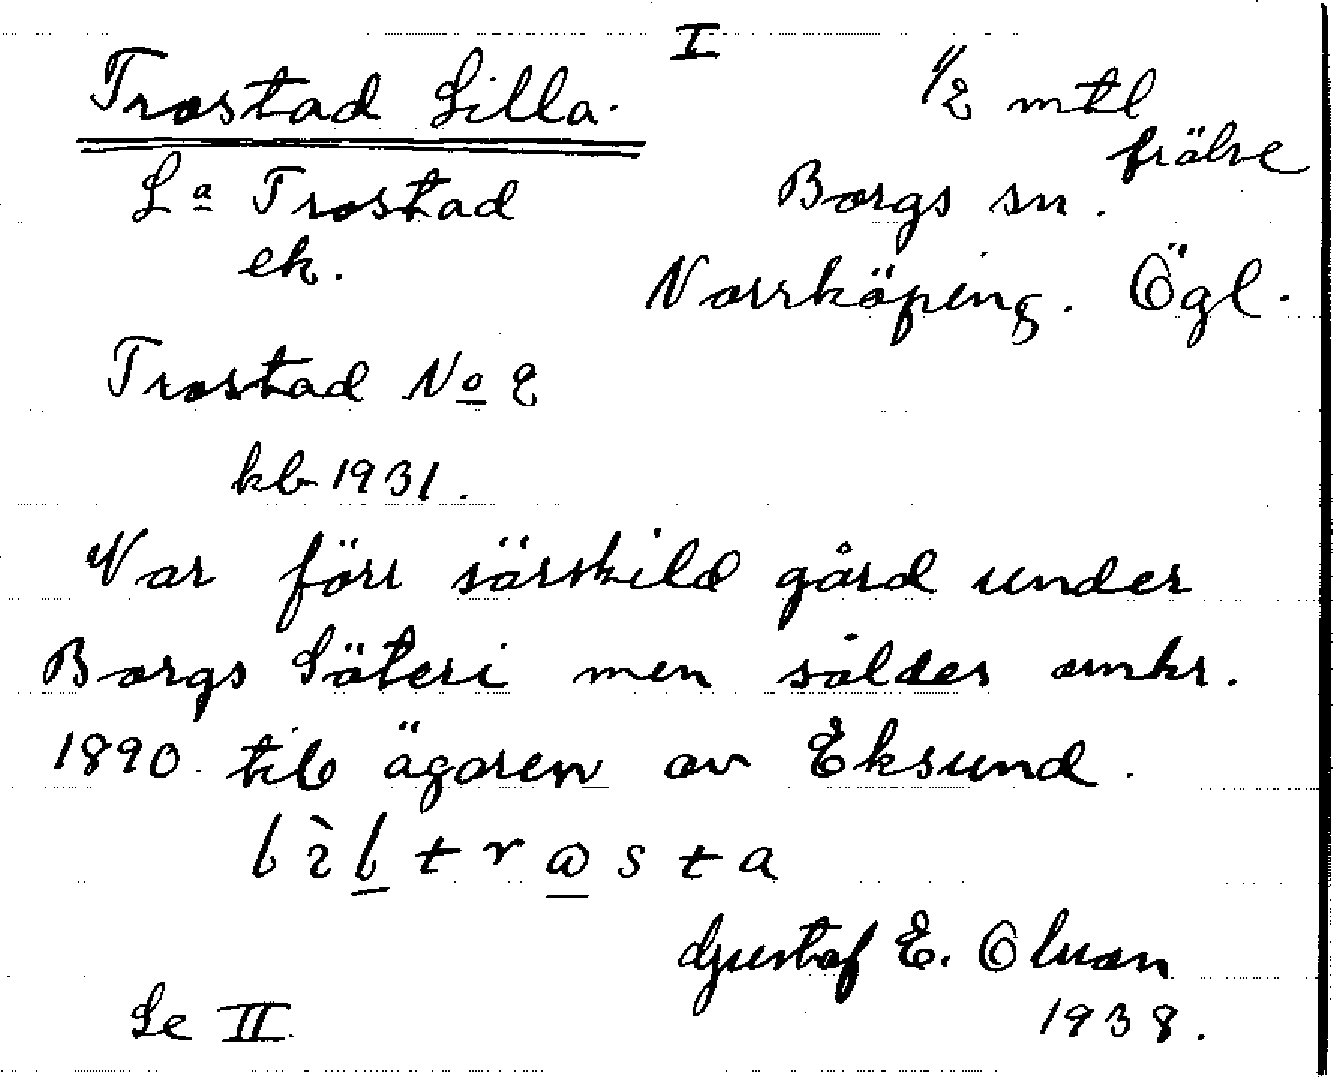 I
Trostad Lilla.
1/2 mtl
frälse
Lª Trostad
ek.
Borgs sn.
Norrköping. Ögl.
Trostad No 2
kb 1931.
Var förr särskild gård under
Borgs Säteri men såldes omkr.
1890 till ägaren av Eksund.
Gustaf E. Olsson
1938.
Se II